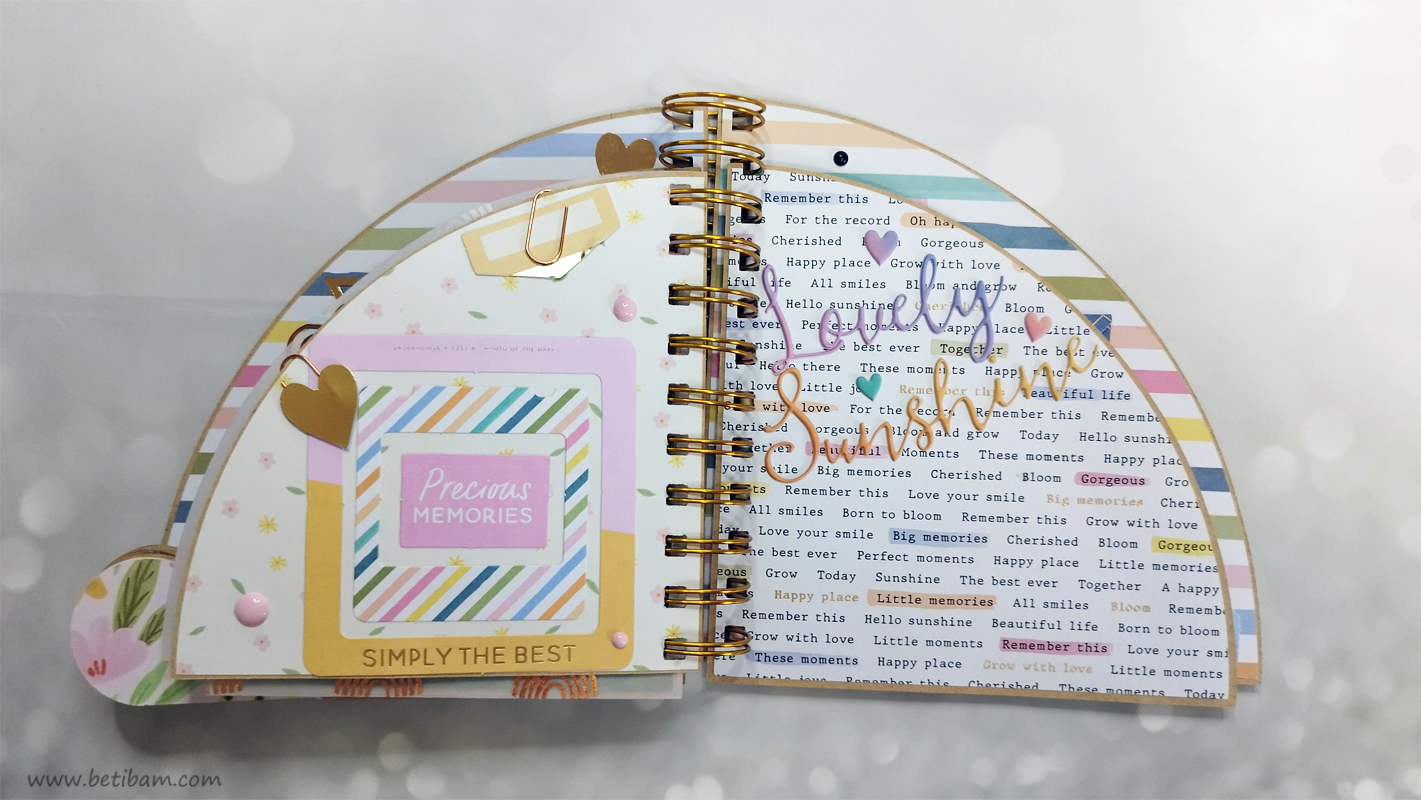 Precious
MEMORIES
SIMPLY THE BEST
Today Sunsh
Remember this Lo
For the record Oh hap
Cherished Gorgeous
Happy place Grow with love
iful life All smiles Bloom and grow
Hello sunshine Cherished Bloom G
est ever Perfect moments Happy place Little
Sunshine The best ever Together The best eve
Hello there These moments Happy place Grow
ith love Little jo Remember this Beautiful life
with love For the record Remember this Rememb
Cherished Gorgeous Bloom and grow Today Hello sunshi
gether Beautiful Moments These moments Happy plac
your smile Big memories Cherished Bloom Gorgeous Gro
nts Remember this Love your smile Big memories Cheri
ce All smiles Born to bloom Remember this Grow with love
day Love your smile Big memories Cherished Bloom Gorgeou
The best ever Perfect moments Happy place Little memories
eous Grow Today Sunshine The best ever Together A happy
Happy place Little memories All smiles Bloom Rememb
s Remember this Hello sunshine Beautiful life Born to bloom
ce Grow with love Little moments Remember this Love your smi
ere These moments Happy place Grow with love Little moments
Little joys Remember this Cherished These moments Today
Lovely
Sunshine
www.betibam.com